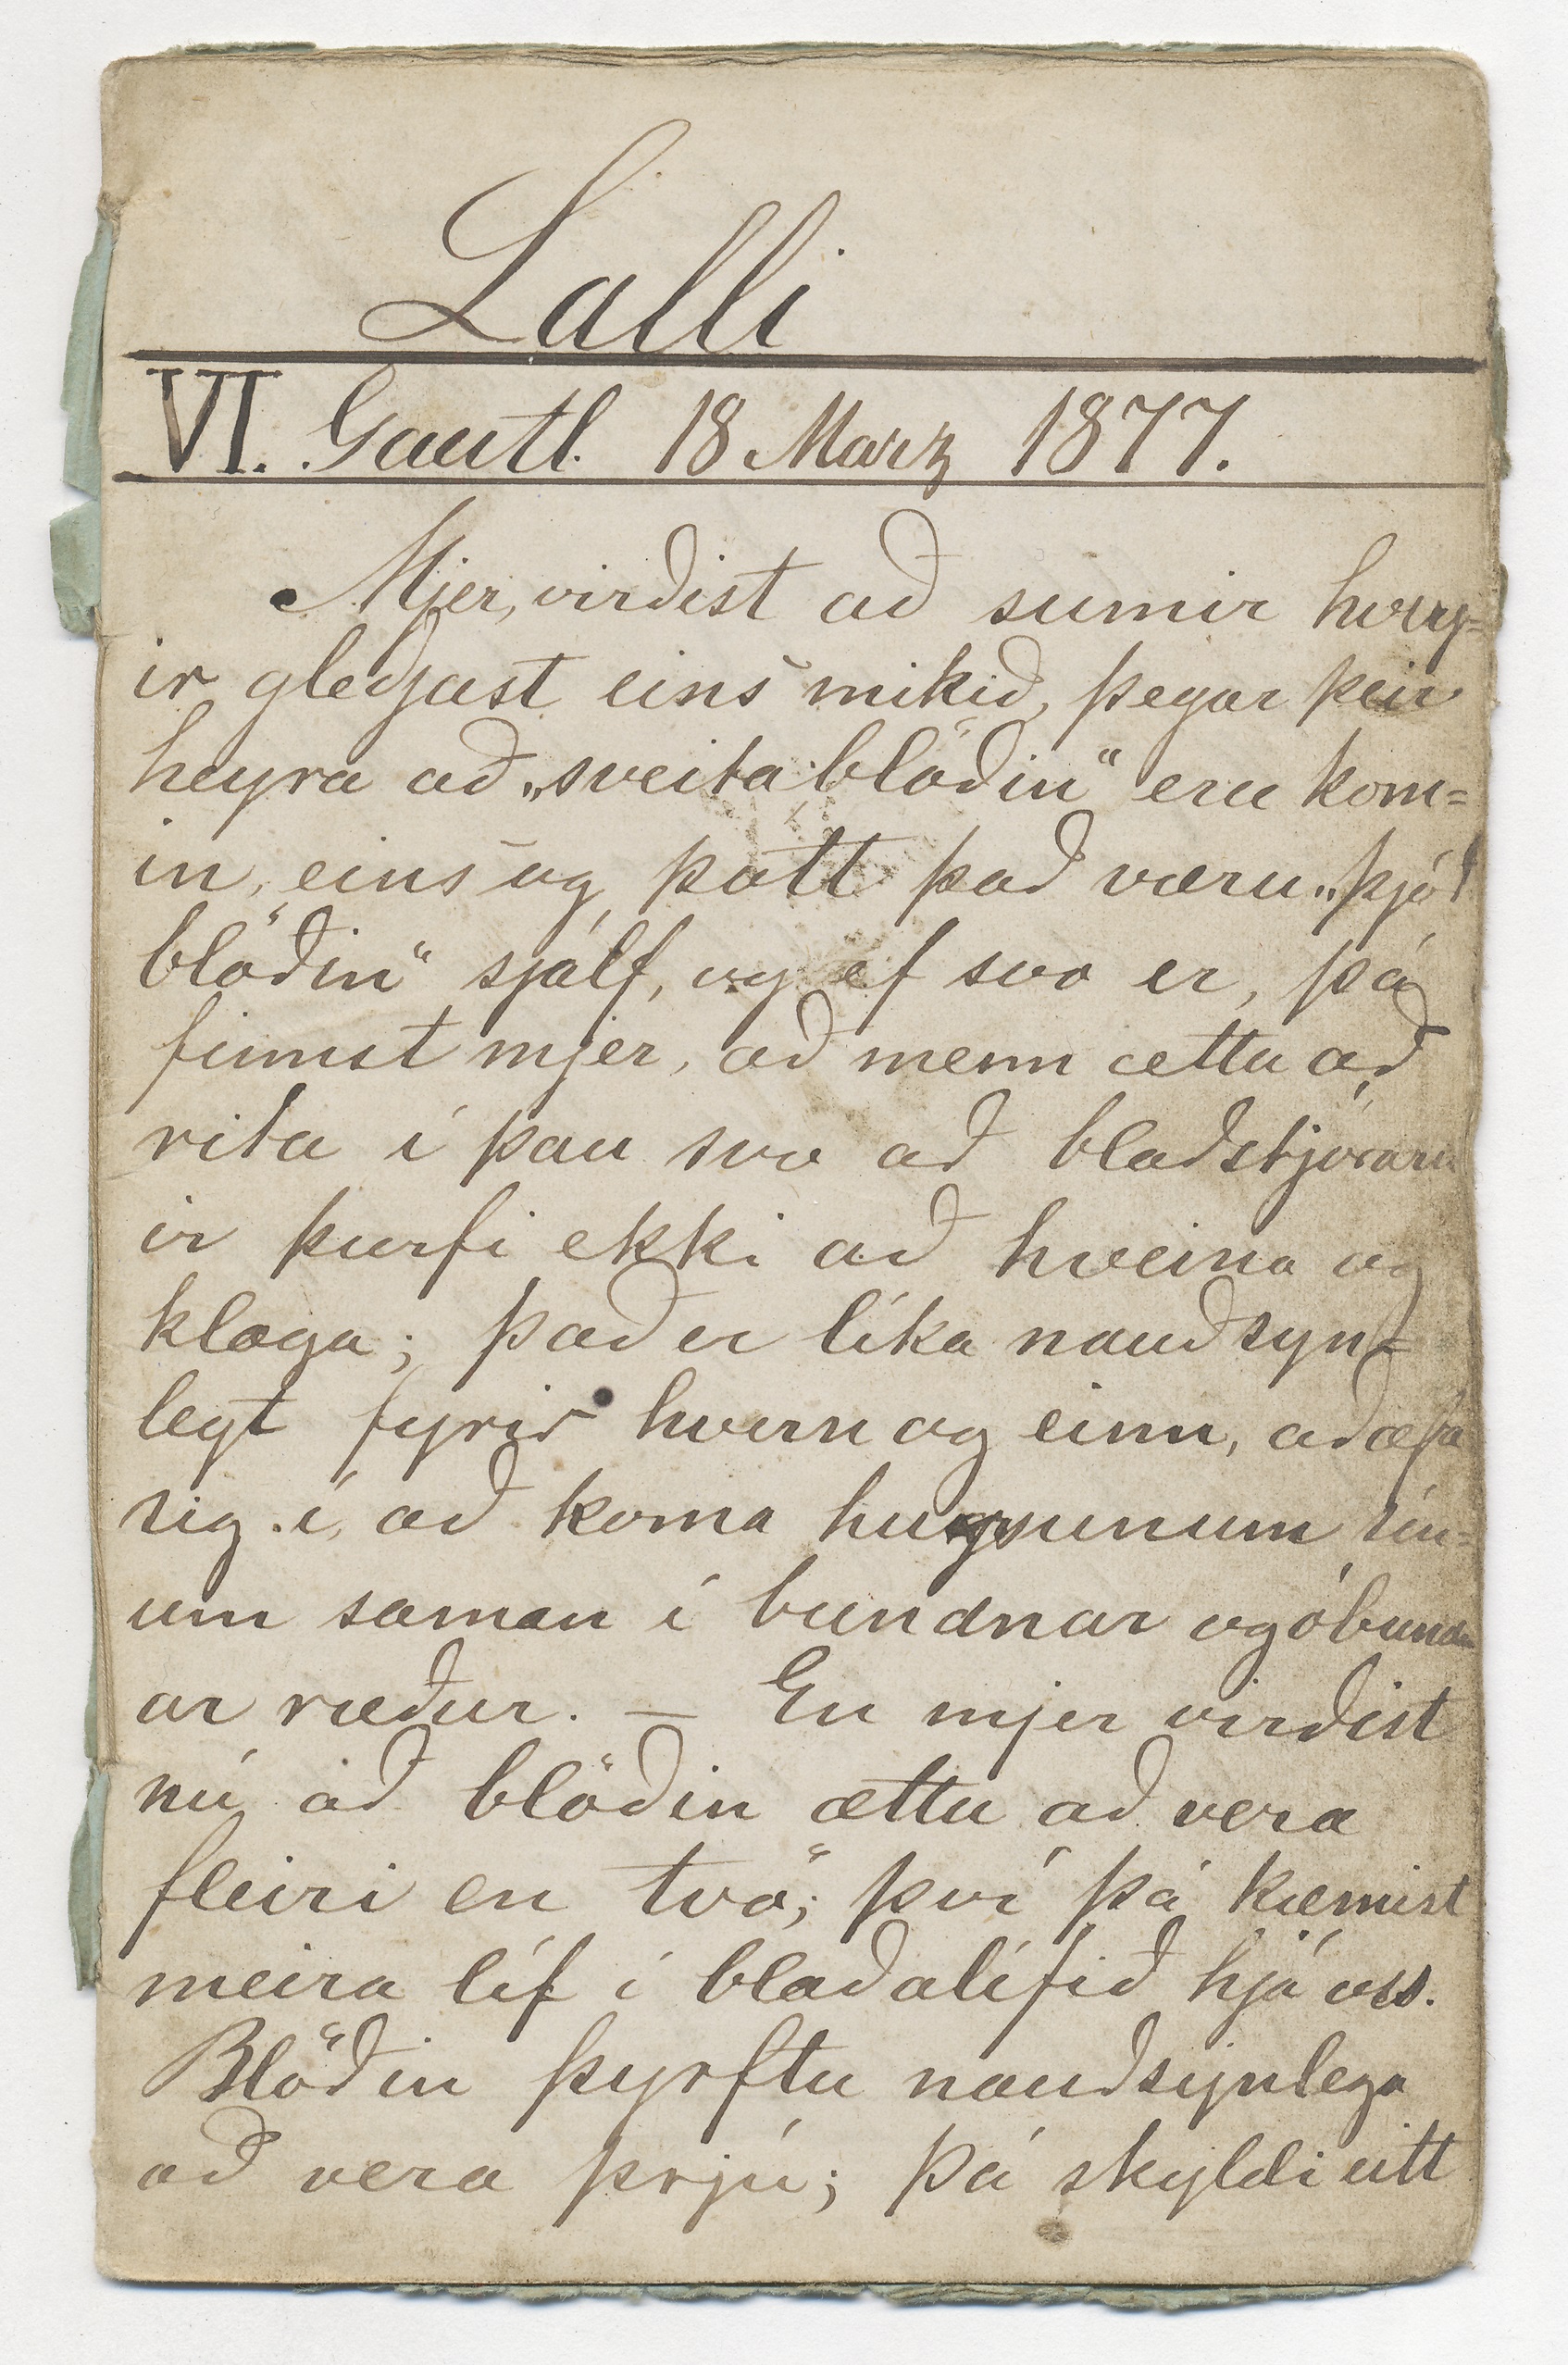 Lalli
VI. Gautl. 18 Marz 1877.
Mjer, virðist að sumir
ir gleðjast eins mikið, þegar þeir
heyra að „sveitablöðin“ eru kom=
in, eins og þótt það væru „þjóð
blöðin“ sjálf, og ef svo er, þá
finnst mjer, að menn ættu að
rita í þau svo að blaðstjórarn
ir þurfi ekki að hveina og
klaga; það er líka nauðsyn=
legt fyrir hvern og einn, að æfa
sig í, að koma hugsunum sín=
um saman í bundnar og óbundn
ar ræður. — En mjer virðist
nú að blöðin ættu að vera
fleiri en tvö; því þá kæmist
meira líf í blaðalífið hjá oss.
Blöðin þyrftu nauðsynlega
að vera þrjú; þá skyldi eitt